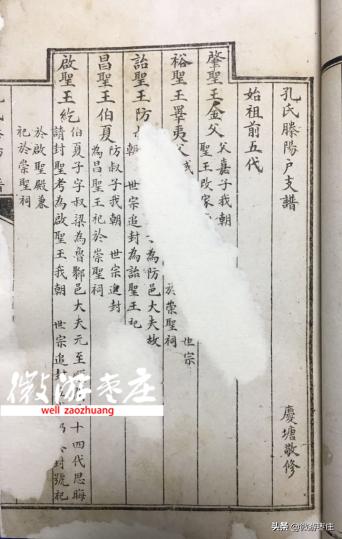 孔氏滕陽户支譜
始祖前五代
慶塘敬修
肇聖王金父
父嘉子我朝
聖王改家
裕聖王睪夷父
於崇聖祠
世宗
詒聖王防
為防邑大夫故
朝 世宗追封為詒聖王祀
昌聖王伯夏
防叔子我朝 世宗追封
為昌聖王祀於崇聖祠
啟聖王紇
伯夏子字叔梁為魯鄹邑大夫元至
十四代思晦
請封聖考為啟聖王我朝 世宗追封
封號祀
於啟聖殿兼
祀於崇聖祠
微游枣庄
well zaozhuang
头条 @微游枣庄